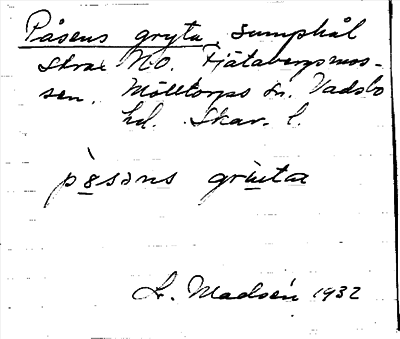 Påsens gryta, sumphål
strax N.O. Fjätabergsmos-
sen. Mölltorps sn. Vadsbo
hd. Skar. l.
pòsəns grùuta
L. Madsén 1932